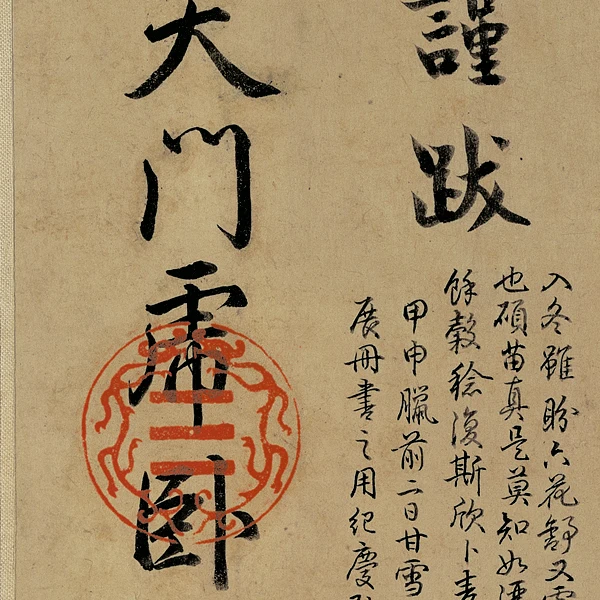 謹跋
入冬雖盼六花舒又
也碩苗真是莫知如
餘穀稔復斯欣卜
甲申臘前二日甘雪
展冊書之用紀慶
天門虎卧